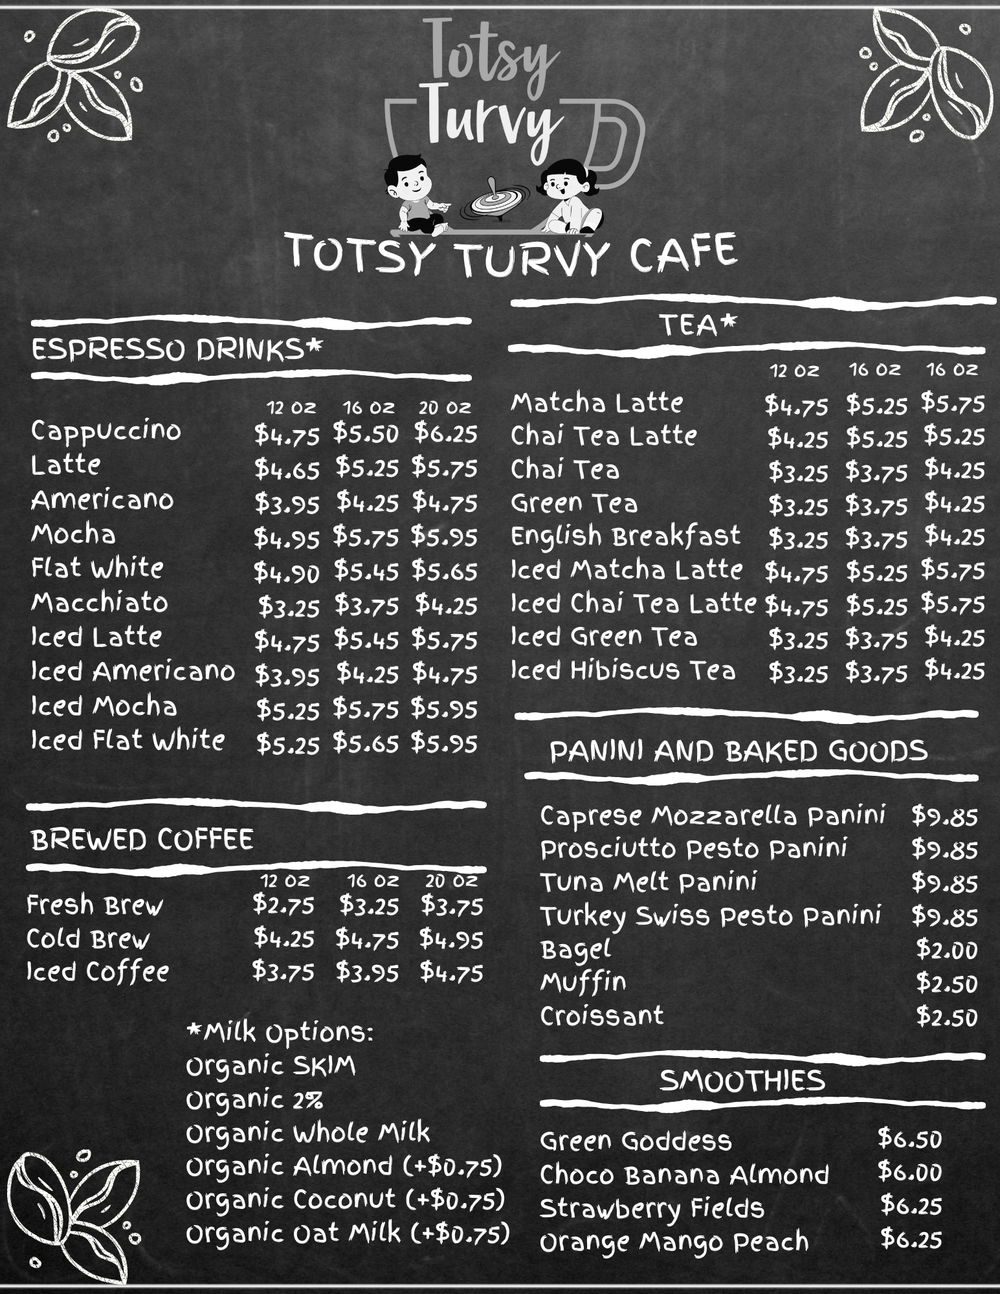 Totsy
Turvy
TOTSY TURVY CAFE
ESPRESSO DRINKS*
12 OZ 16 OZ 20 OZ
Cappuccino $4.75 $5.50 $6.25
Latte $4.65 $5.25 $5.75
Americano $3.95 $4.25 $4.75
Mocha $4.95 $5.75 $5.95
Flat White $4.90 $5.45 $5.65
Macchiato $3.25 $3.75 $4.25
Iced Latte $4.75 $5.45 $5.75
Iced Americano $3.95 $4.25 $4.75
Iced Mocha $5.25 $5.75 $5.95
Iced Flat White $5.25 $5.65 $5.95
BREWED COFFEE
12 OZ 16 OZ 20 OZ
Fresh Brew $2.75 $3.25 $3.75
Cold Brew $4.25 $4.75 $4.95
Iced Coffee $3.75 $3.95 $4.75
*Milk Options:
Organic SKIM
Organic 2%
Organic Whole Milk
Organic Almond (+$0.75)
Organic Coconut (+$0.75)
Organic Oat Milk (+$0.75)
TEA*
12 OZ 16 OZ 16 OZ
Matcha Latte $4.75 $5.25 $5.75
Chai Tea Latte $4.25 $5.25 $5.25
Chai Tea $3.25 $3.75 $4.25
Green Tea $3.25 $3.75 $4.25
English Breakfast $3.25 $3.75 $4.25
Iced Matcha Latte $4.75 $5.25 $5.75
Iced Chai Tea Latte $4.75 $5.25 $5.75
Iced Green Tea $3.25 $3.75 $4.25
Iced Hibiscus Tea $3.25 $3.75 $4.25
PANINI AND BAKED GOODS
Caprese Mozzarella Panini $9.85
Prosciutto Pesto Panini $9.85
Tuna Melt Panini $9.85
Turkey Swiss Pesto Panini $9.85
Bagel $2.00
Muffin $2.50
Croissant $2.50
SMOOTHIES
Green Goddess $6.50
Choco Banana Almond $6.00
Strawberry Fields $6.25
Orange Mango Peach $6.25